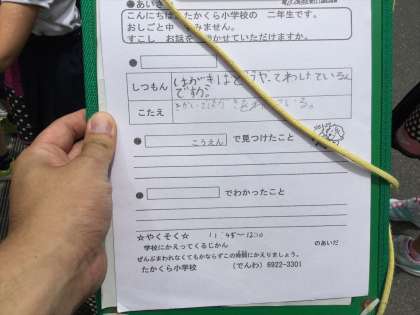 ●あいさ
こんにちは たかくら小学校の 二年生です。
おしごと中 みません。
すこし お話を かせていただけますか。
しつもん はがきはどうやってわしているん
ですか。
こたえ
● こうえん で見つけたこと
● でわかったこと
☆やくそく☆ 11:45~12:00
学校にかえってくるじかん のあいだ
ぜんぶまわれなくてもかならずこの時間にかえりましょう。
たかくら小学校 (でんわ) 6922-3301